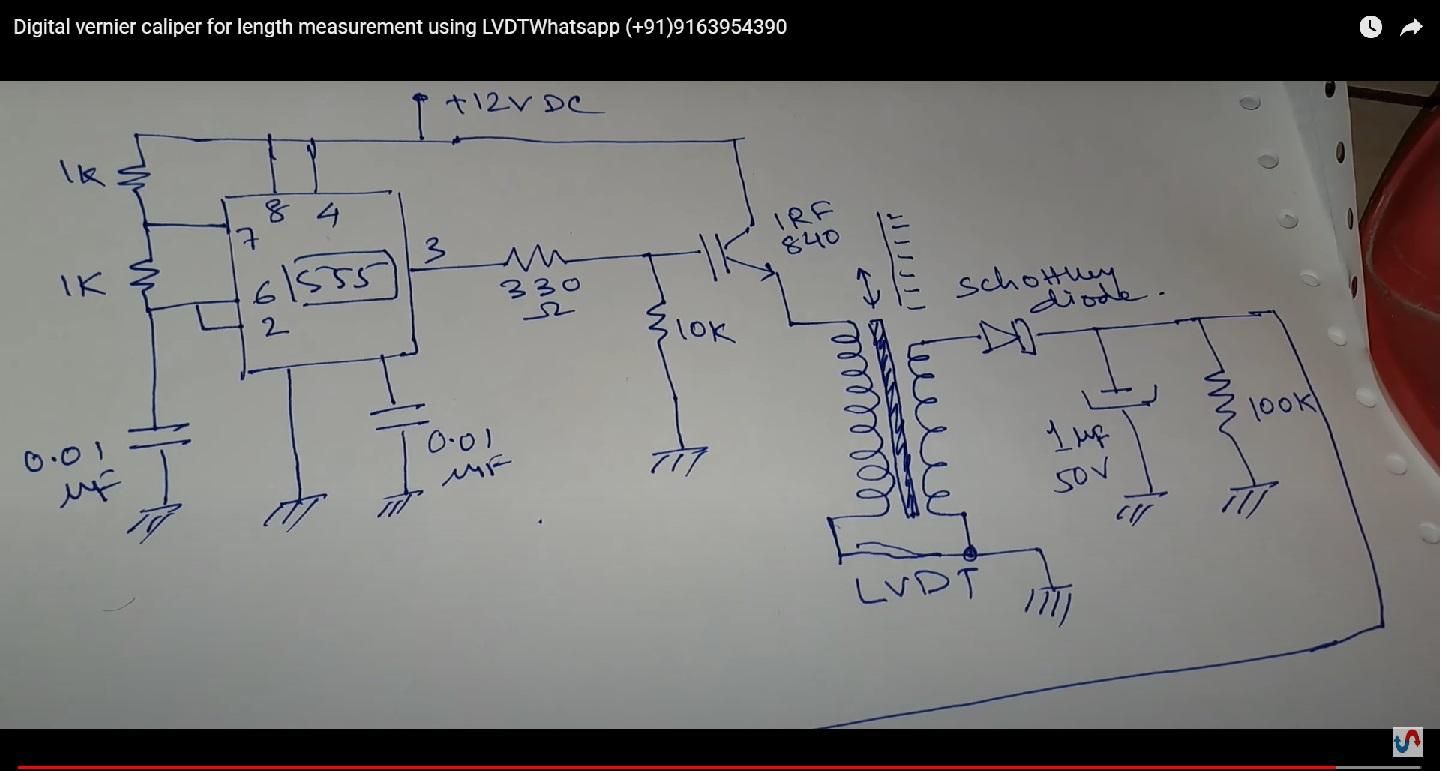 Digital vernier caliper for length measurement using LVDTWhatsapp (+91)9163954390
+12V DC
1K
8 4
7
1K
6
555
2
3
330
Ω
10K
IRF
840
Schottky
diode.
0.01
μF
0.01
μF
1μF
50V
100K
LVDT